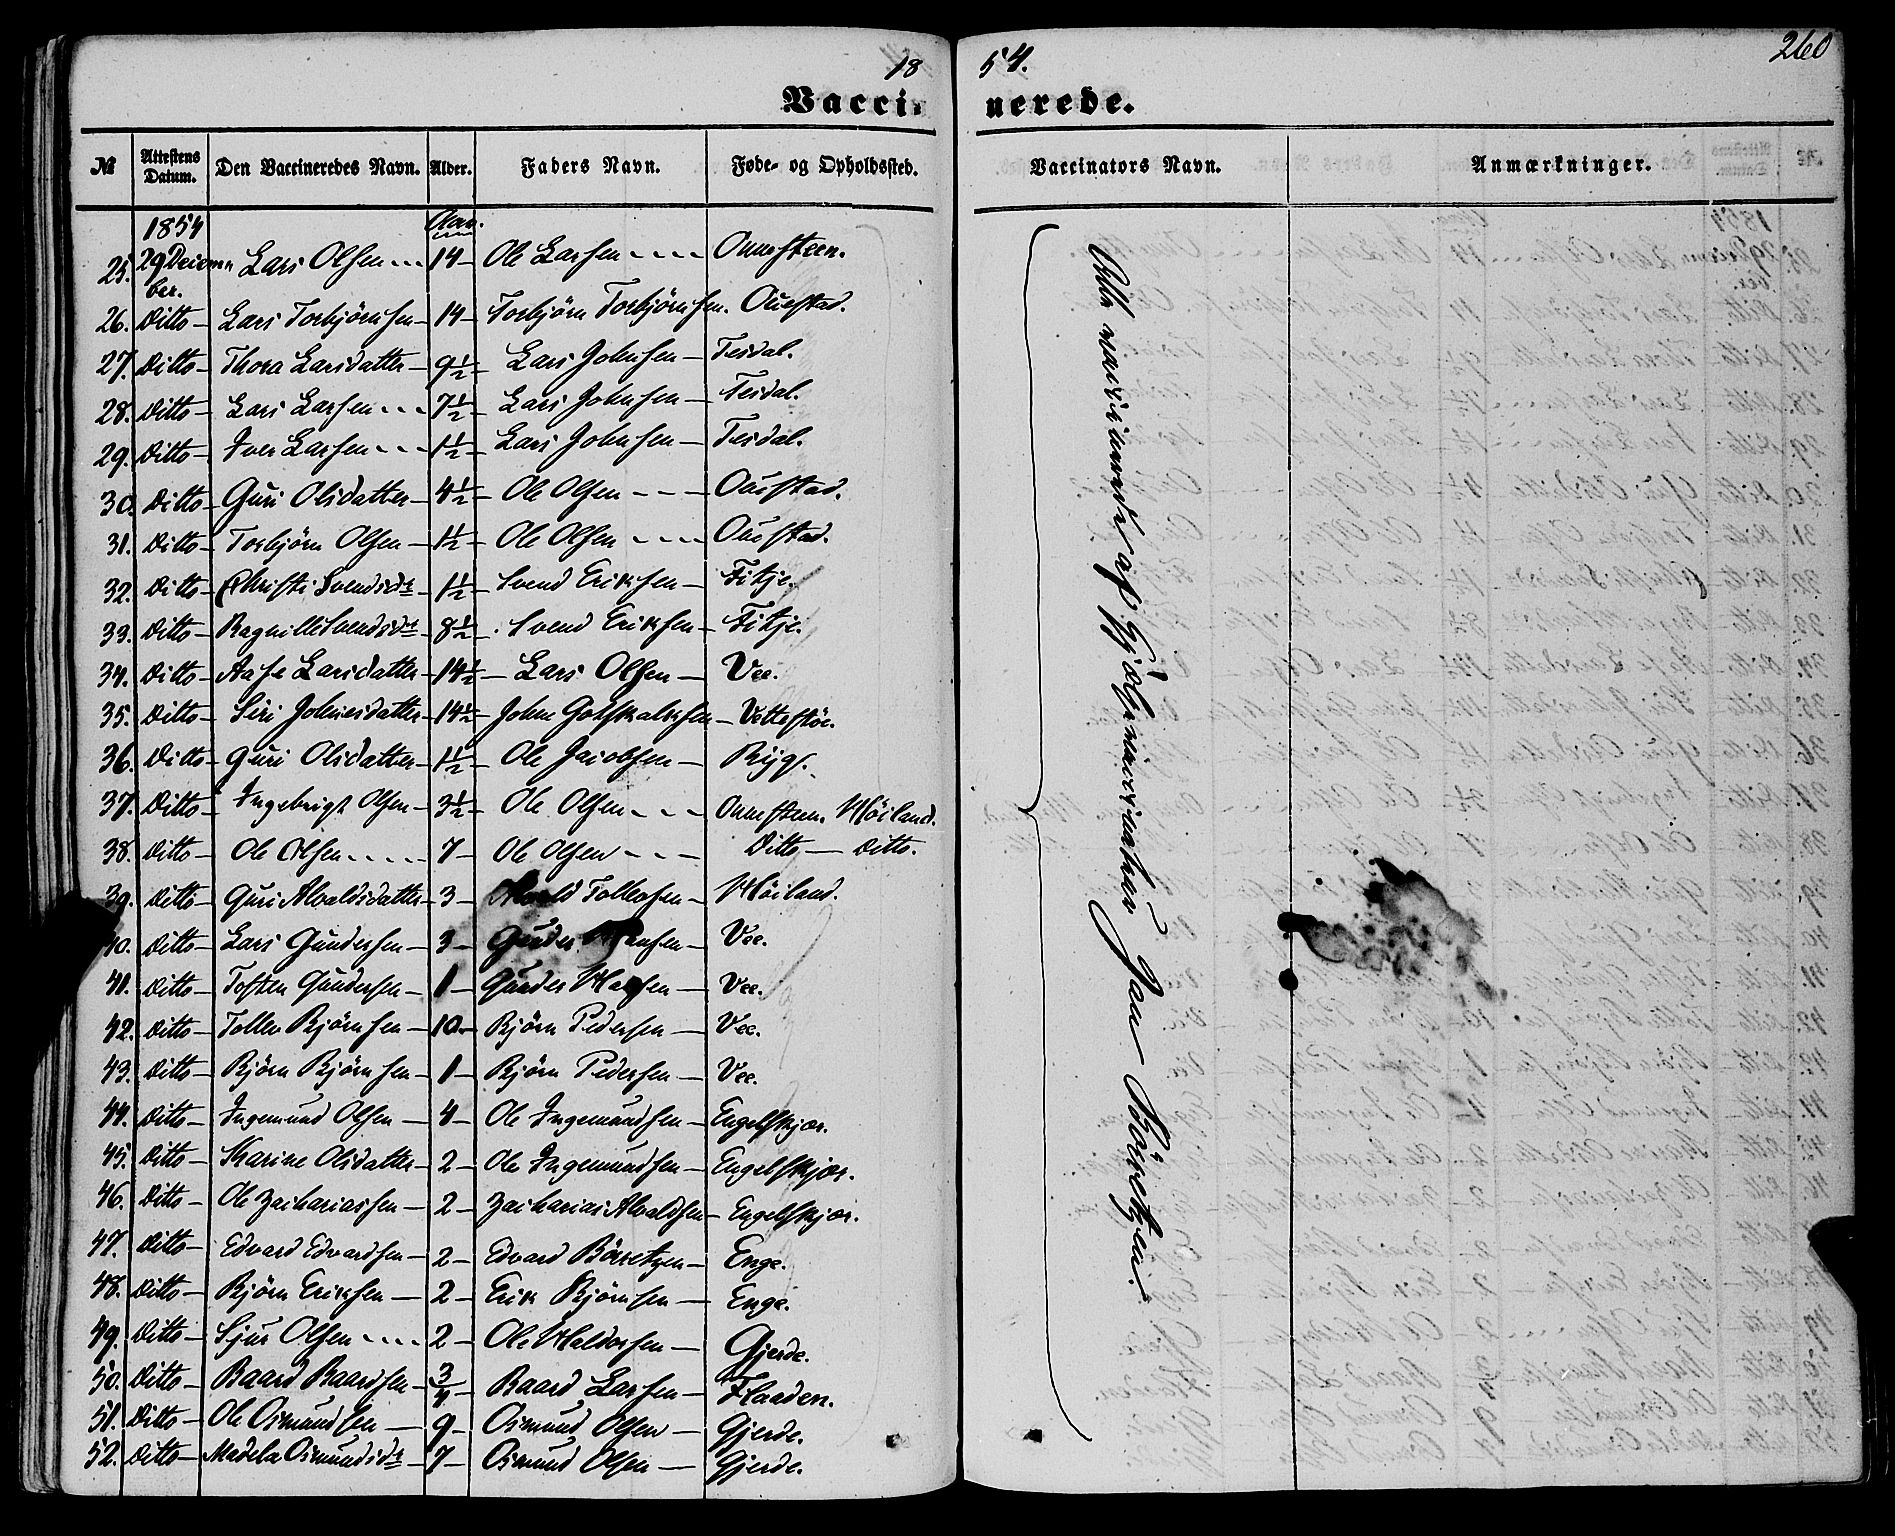 1854.
260
Vaccinerede.
№ Attestens Datum. Den Vaccineredes Navn. Alder. Faders Navn. Føde- og Opholdssted. Vaccinators Navn. Anmærkninger.
1854 Aar.
25. 29 December. Lars Olsen 14 Ole Larsen
26. Ditto Lars Torbjörnsen 14 Torbjörn Torbjörnsen. Ouestad.
27. Ditto Thora Larsdatter 9½ Lars Johnsen Tesdal.
28. Ditto Lars Larsen 7½ Lars Johnsen Tesdal.
29. Ditto Iver Larsen 1½ Lars Johnsen Tesdal.
30. Ditto Guri Olsdatter 4½ Ole Olsen Ouestad.
31. Ditto Torbjörn Olsen 1½ Ole Olsen Ouestad.
32. Ditto Christi Svendsdr 1½ Svend Eriksen Fitje.
33. Ditto Ragnille Svendsdr 8½ Svend Eriksen Fitje.
34. Ditto Aase Larsdatter 14½ Lars Olsen Vee.
35. Ditto Siri Johnesdatter 14½ Johne Gotskalksen
36. Ditto Guri Olsdatter 1½ Ole Jacobsen Ryg.
37. Ditto Ingebrigt Olsen 3½ Ole Olsen Höiland.
38. Ditto Ole Olsen 7 Ole Olsen Ditto ditto.
39. Ditto Guri Alvaldsdatter 3 Alvald Tollefsen Höiland.
40. Ditto Lars Gundersen 3 Gunder Hansen Vee.
41. Ditto Tosten Gundersen 1 Gunder Hansen Vee.
42. Ditto Tollev Björnsen 10 Björn Pedersen Vee.
43. Ditto Björn Björnsen 1 Björn Pedersen Vee.
44. Ditto Ingemund Olsen 4 Ole Ingemundsen Engelskjær.
45. Ditto Karine Olsdatter 2 Ole Ingemundsen Engelskjær.
46. Ditto Ole Zachariassen 2 Zacharias Alvaldsen Engelskjær.
47. Ditto Edvard Edvardsen 2 Edvard Börretzen Enge.
48. Ditto Björn Eriksen 2 Erik Björnsen Enge.
49. Ditto Sjur Olsen 2 Ole Haldorsen Gjerde.
50. Ditto Baard Baardsen ¾ Baard Larsen Flaaden.
51. Ditto Ole Osmundsen 9 Osmund Olsen Gjerde.
52. Ditto Madela Osmundsdr 7 Osmund Olsen Gjerde.
Alle vaccinerede af Hjelpevaccinatør Jan Börretzen.